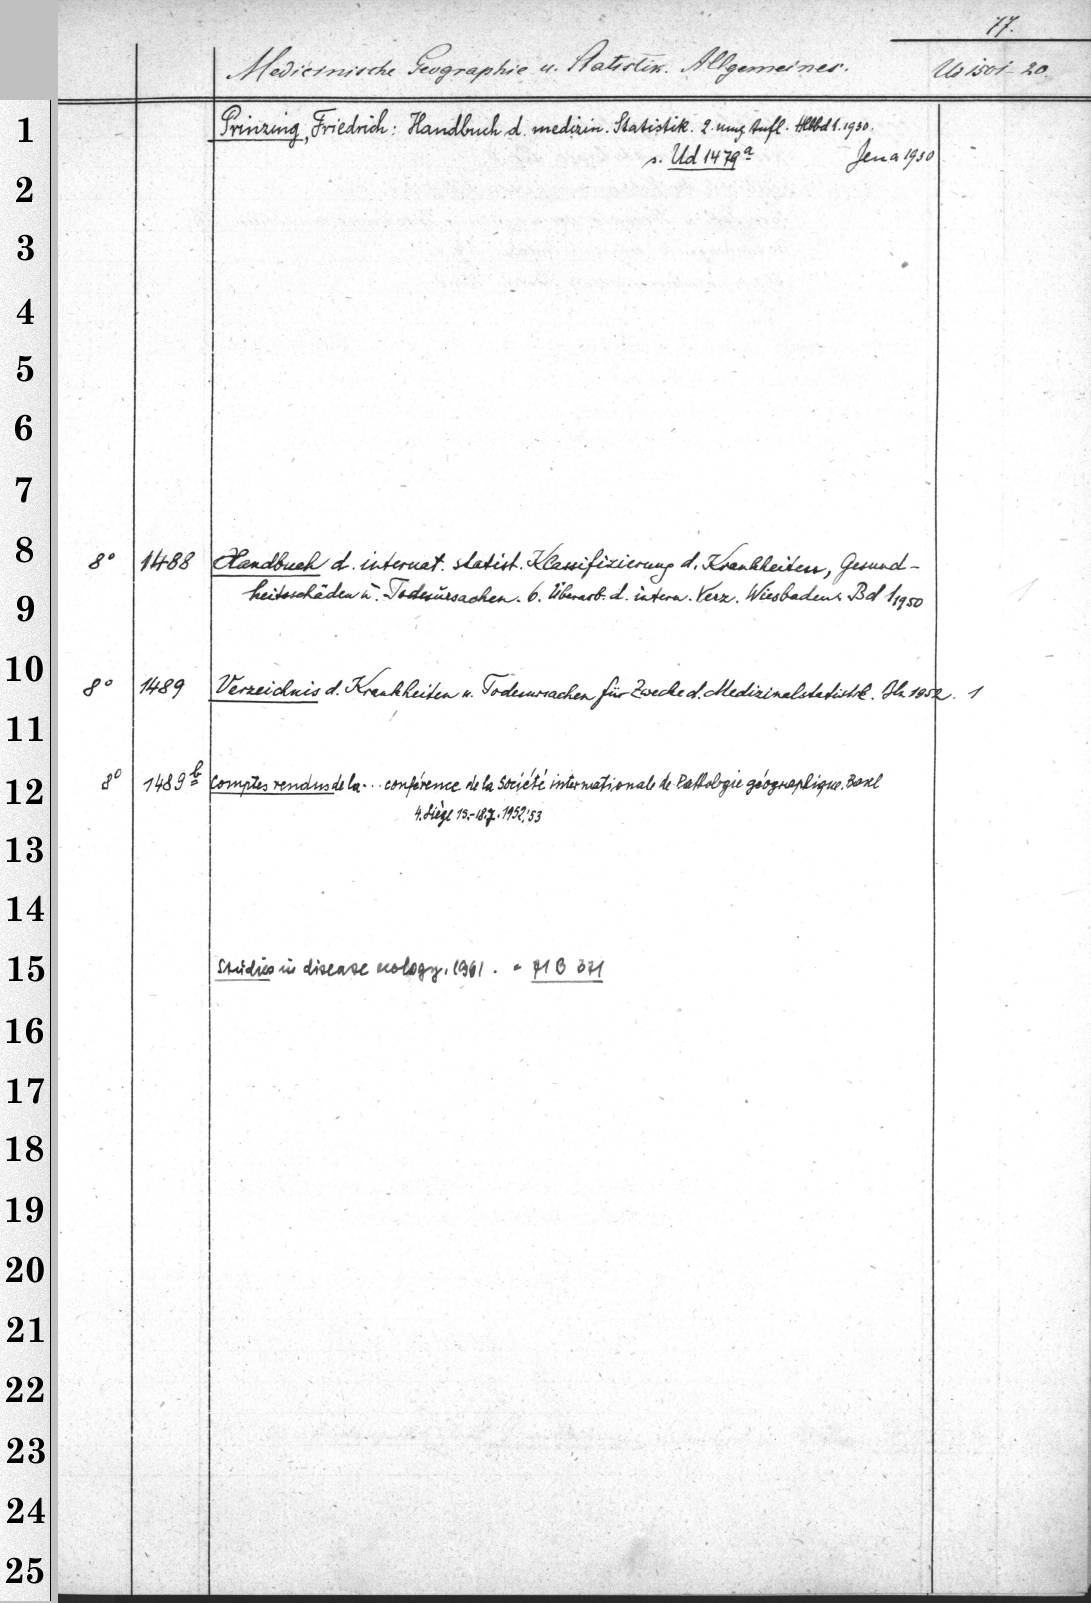 77.
Medicinische Geographie u. Statistik. Allgemeines. 1501-20
1 Prinzing, Friedrich: Handbuch d. medizin. Statistik. 2. umg. Aufl. Hlbbd 1. 1930.
s. Ud 1479ª Jena 1930
2
3
4
5
6
7
8 8° 1488 Handbuch d. internat. statist. Klassifizierung d. Krankheiten, Gesund-
9 heitsschäden u. Todesursachen. 6. Überarb. d. intern. Verz. Wiesbaden. Bd 1 1950
10 8° 1489 Verzeichnis d. Krankheiten u. Todesursachen für Zwecke d. Medizinalstatistik. Bln 1952. 1
11
12 8° 1489b Comptes rendus de la... conférence de la Société internationale de Pathologie géographique. Basel
4. Liège 15.-18.7.1952.'53
13
14
15 Studies in disease ecology. 1961. = 71 B 371
16
17
18
19
20
21
22
23
24
25